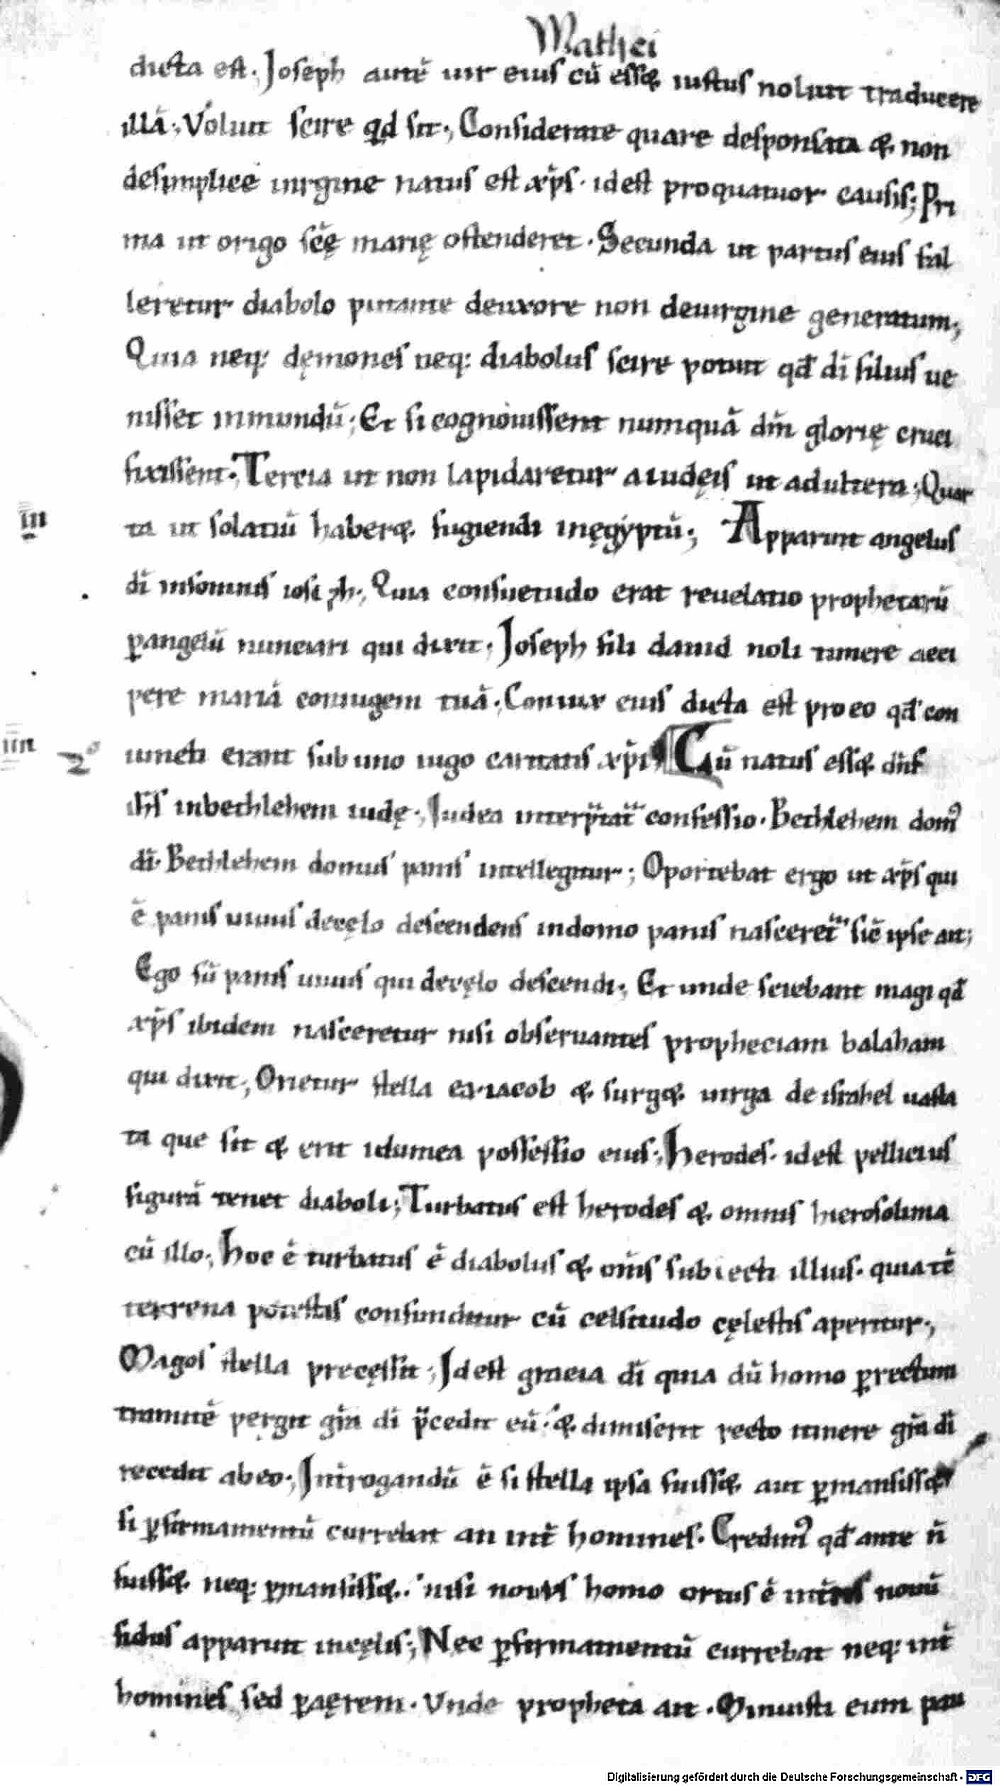 Mathei
dicta est. Joseph autē uir eius cū esset iustus noluit traducere
illā; Voluit scire qđ sit; Considerate quare desponsata & non
desimplice uirgine natus est xp̄s. idest proquatuor causis; Pri
ma ut origo scę̄ marię ostenderet. Secunda ut partus eius fal
leretur diabolo putante deuxore non deuirgine generatum;
Quia neq; dęmones neq; diabolus scire potuit qđ dī filius ue
nisset inmundū; Et si cognouissent numquā dn̄m glorię cruci
fixissent. Tercia ut non lapidaretur aiudęis ut adultera; Quar
ta ut solatiū haber&. fugiendi inęgyptū; Apparuit angelus
dī insomnis ioseph; Quia consuetudo erat reuelatio prophetarū
ꝑangelū nunciari qui dixit. Joseph fili dauid noli timere acci
pere mariā coniugem tuā. Coniux eius dicta est proeo qđ con
iuncti erant sub uno iugo caritatis xp̄i Cū natus ess& dn̄s
ih̄s inbethlehem iudę; Judea interp̄tat confessio. Bethlehem dom᾿
dī. Bethlehem domus panis intellegitur; Oportebat ergo ut xp̄s qui
ē panis uiuus decęlo descendens indomo panis nasceret sic̄ ipse ait;
Ego sū panis uiuus qui decęlo descendi; Et unde sciebant magi qđ
xp̄s ibidem nasceretur nisi obseruantes propheciam balaham
qui dixit; Orietur stella ex iacob & surg&. uirga de israhel uasta
ta que sit & erit idumea possessio eius; Herodes. idest pellicius
figurā tenet diaboli; Turbatus est herodes & omnis hierosolima
cū illo; Hoc ē turbatus ē diabolus & om̄s subiecti illius. quia tē
terrena potestas confunditur cū celsitudo cęlestis aperitur;
Magos stella precessit; Jdest gracia dī quia dū homo ꝑrectum
tramitē pergit gr̄a dī p̄cedit eū. & dimiserit recto itinere gr̄a dī
recedit abeo; Int̄rogandū ē si stella ipsa fuiss& aut ꝑmansiss&
si ꝑfirmamentū currebat an int̄ homines. Credim᾿ qđ ante n̄
fuiss& neq; ꝑmansiss&. nisi nouus homo ortus ē nouū
sidus apparuit incęlis; Nec ꝑfirmamentū currebat neq; int̄
homines sed ꝑaerem. Vnde propheta ait. Minuisti eum pau
iii
iiii
Digitalisierung gefördert durch die Deutsche Forschungsgemeinschaft - DFG